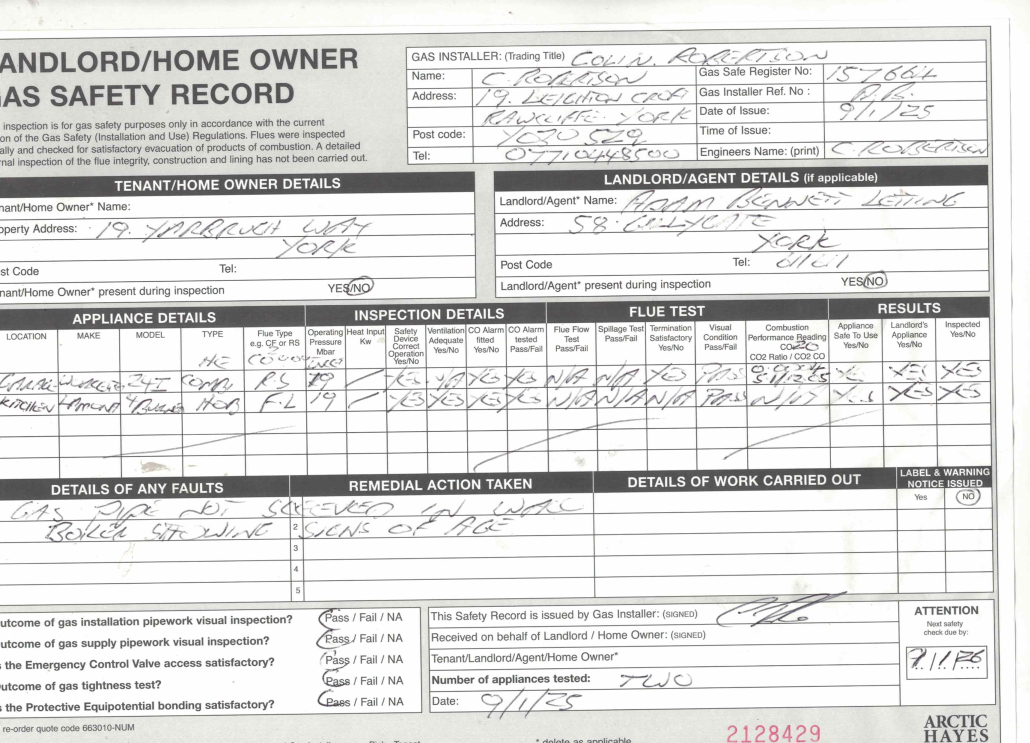 ANDLORD/HOME OWNER
GAS SAFETY RECORD
inspection is for gas safety purposes only in accordance with the current
on of the Gas Safety (Installation and Use) Regulations. Flues were inspected
ally and checked for satisfactory evacuation of products of combustion. A detailed
rnal inspection of the flue integrity, construction and lining has not been carried out.
GAS INSTALLER: (Trading Title) COLIN. ROBERTSON
Name: C. ROBERTSON
Gas Safe Register No:
Address: 19. LEIGHTON CROFT
Gas Installer Ref. No :
RAWCLIFFE. YORK
Date of Issue: 9/1/25
Post code:
Time of Issue:
Tel: 07710448500
Engineers Name: (print) C. ROBERTSON
TENANT/HOME OWNER DETAILS
nant/Home Owner* Name:
operty Address: 19. YARBRUGH WAY
YORK
st Code Tel:
nant/Home Owner* present during inspection YES/NO
LANDLORD/AGENT DETAILS (if applicable)
Landlord/Agent* Name: ADAM BENNETT LETTING
Address: 58. GILLYGATE
YORK
Post Code Tel:
Landlord/Agent* present during inspection YES/NO
APPLIANCE DETAILS INSPECTION DETAILS FLUE TEST RESULTS
LOCATION MAKE MODEL TYPE Flue Type e.g. CF or RS Operating Pressure Mbar Heat Input Kw Safety Device Correct Operation Yes/No Ventilation Adequate Yes/No CO Alarm fitted Yes/No CO Alarm tested Pass/Fail Flue Flow Test Pass/Fail Spillage Test Pass/Fail Termination Satisfactory Yes/No Visual Condition Pass/Fail Combustion Performance Reading CO2 CO2 Ratio / CO2 CO Appliance Safe To Use Yes/No Landlord's Appliance Yes/No Inspected Yes/No
24I COMBI R.S 19 YES N/A YES YES N/A N/A YES PASS YES YES YES
KITCHEN HOB F.L 19 YES YES YES YES N/A N/A N/A PASS N/A YES YES YES
DETAILS OF ANY FAULTS REMEDIAL ACTION TAKEN DETAILS OF WORK CARRIED OUT LABEL & WARNING NOTICE ISSUED
Yes NO
GAS PIPE NOT SLEEVED IN WALL
BOILER SHOWING 2 SIGNS OF AGE
3
4
5
utcome of gas installation pipework visual inspection? Pass / Fail / NA
utcome of gas supply pipework visual inspection? Pass / Fail / NA
s the Emergency Control Valve access satisfactory? Pass / Fail / NA
utcome of gas tightness test? Pass / Fail / NA
s the Protective Equipotential bonding satisfactory? Pass / Fail / NA
This Safety Record is issued by Gas Installer: (SIGNED)
Received on behalf of Landlord / Home Owner: (SIGNED)
Tenant/Landlord/Agent/Home Owner*
Number of appliances tested: TWO
Date: 9/1/25
ATTENTION
Next safety
check due by:
9/1/26
re-order quote code 663010-NUM
* delete as applicable
2128429
ARCTIC
HAYES